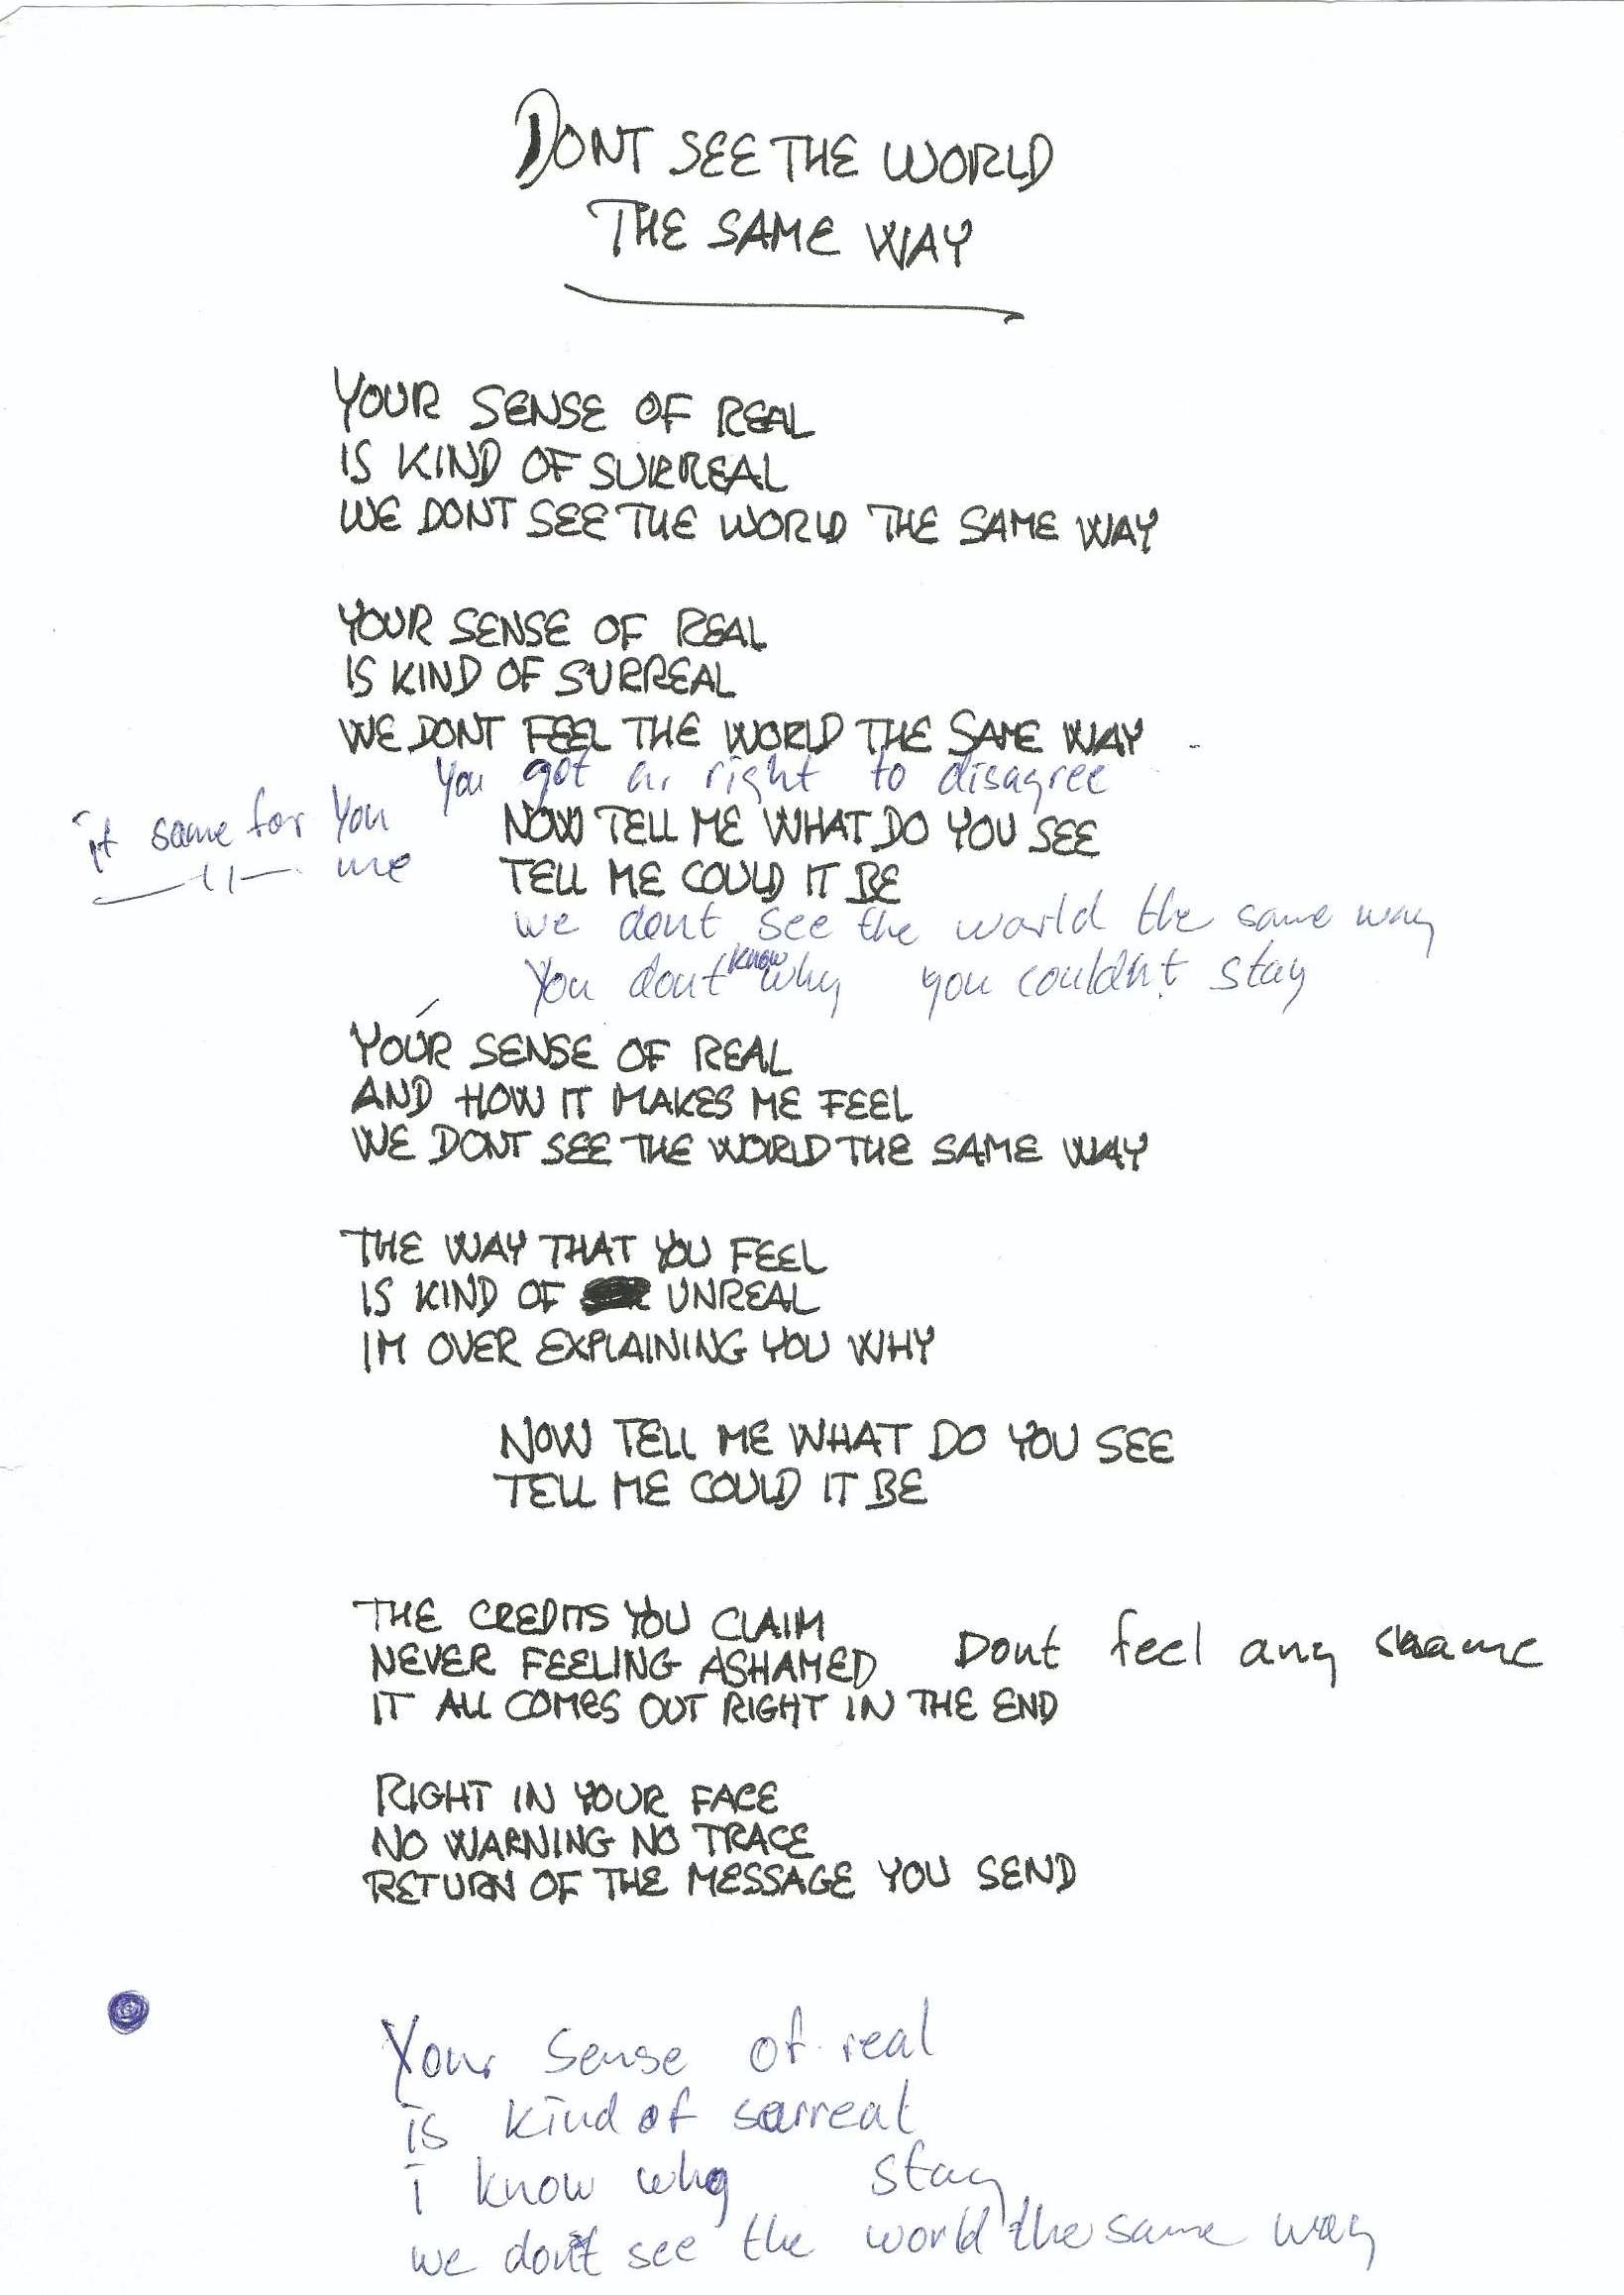 DONT SEE THE WORLD
THE SAME WAY
YOUR SENSE OF REAL
IS KIND OF SURREAL
WE DONT SEE THE WORLD THE SAME WAY
YOUR SENSE OF REAL
IS KIND OF SURREAL
WE DONT FEEL THE WORLD THE SAME WAY
You got a right to disagree
it same for You
—11— me
NOW TELL ME WHAT DO YOU SEE
TELL ME COULD IT BE
we dont see the world the same way
You dont know why you couldn't stay
YOUR SENSE OF REAL
AND HOW IT MAKES ME FEEL
WE DONT SEE THE WORLD THE SAME WAY
THE WAY THAT YOU FEEL
IS KIND OF UNREAL
IM OVER EXPLAINING YOU WHY
NOW TELL ME WHAT DO YOU SEE
TELL ME COULD IT BE
THE CREDITS YOU CLAIM
NEVER FEELING ASHAMED Dont feel any shame
IT ALL COMES OUT RIGHT IN THE END
RIGHT IN YOUR FACE
NO WARNING NO TRACE
RETURN OF THE MESSAGE YOU SEND
Your sense of real
is kind of surreal
i know why stay
we don't see the world the same way